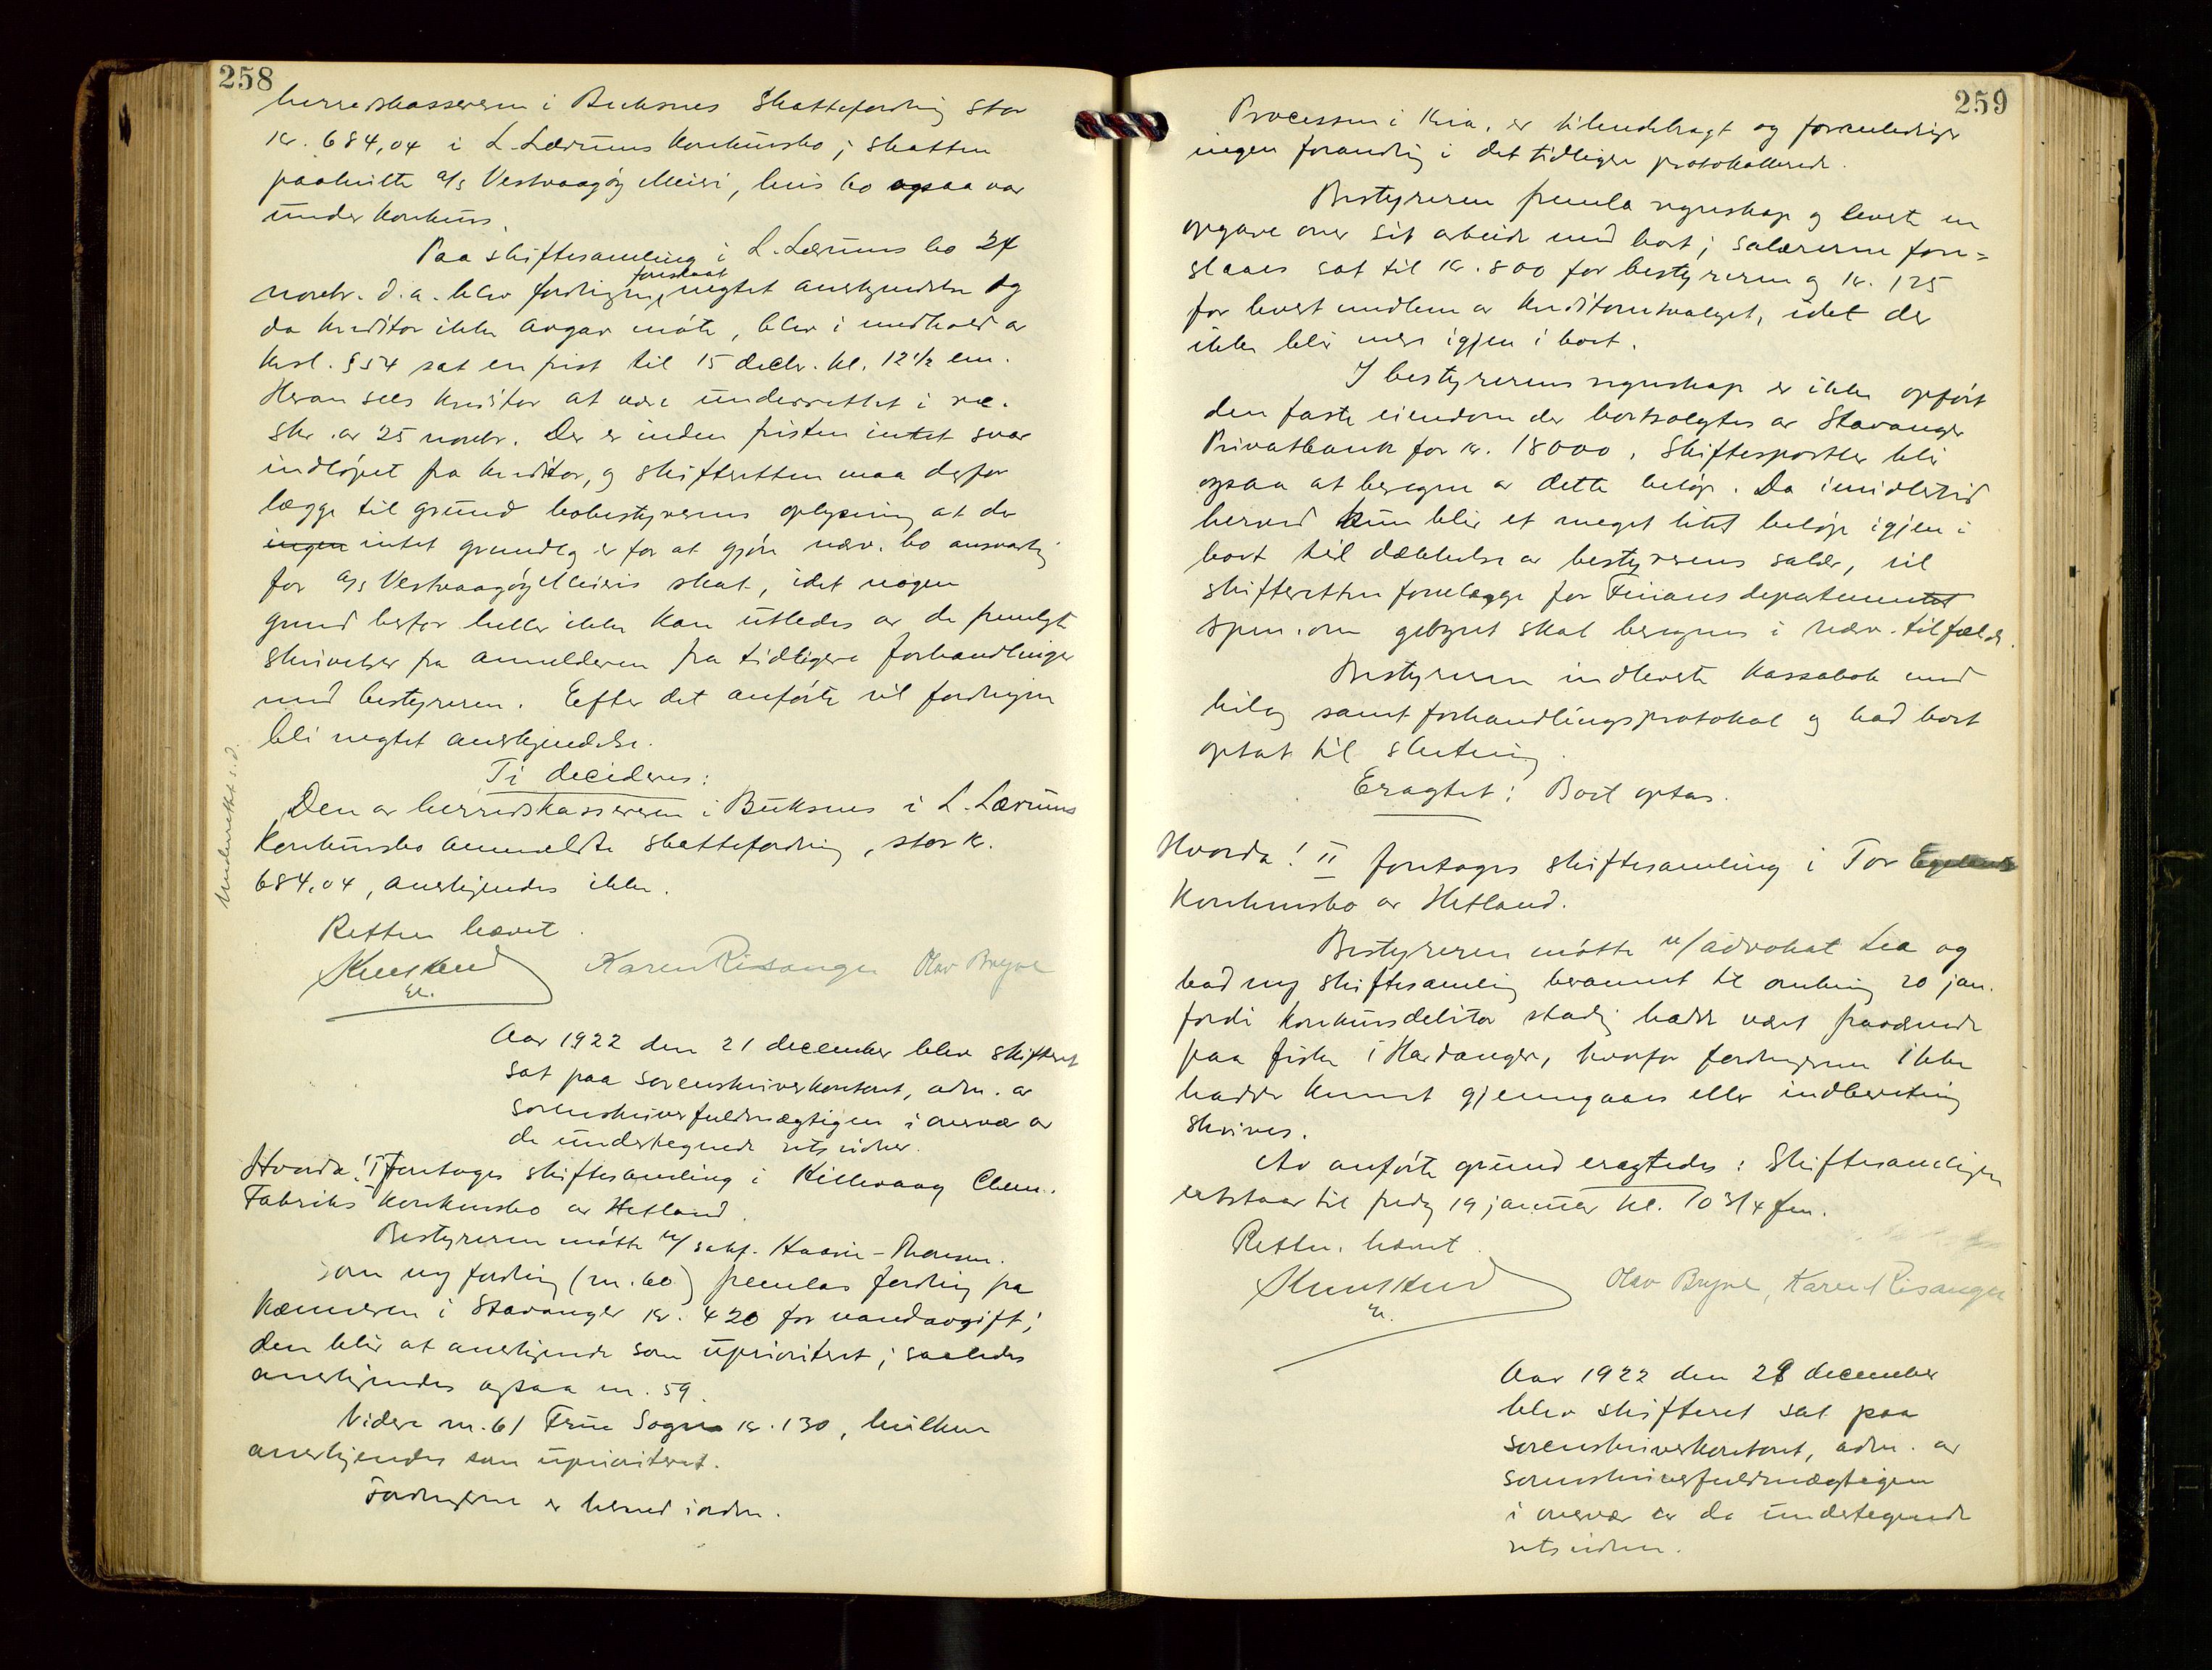 258
herredskassereren i Buksnes skattefordring stor
kr. 684,04 i L. Lærums konkursbo; skatten
paahvilte a/s Vestvaagøy Meieri, hvis bo ogsaa var
under konkurs.
Paa skiftesamling i L. Lærums bo 24
novbr. d.a. blev fordringen foreslaat negtet anerkjendelse og
da kreditor ikke avgav møte, blev i medhold av
kksl. § 54 sat en frist til 15 decbr. kl. 12 1/2 em.
Herav sees kreditor at være underrettet i rek.
skr. av 25 novbr. Der er inden fristen intet svar
indløpet fra kreditor, og skifteretten maa derfor
lægge til grund bobestyrerens oplysning at der
ingen intet grundlag er for at gjøre nærv. bo ansvarlig
for a/s Vestvaagøy Meieris skat, idet nogen
grund herfor heller ikke kan utledes av de fremlagte
skrivelser fra anmelderen fra tidligere forhandlinger
med bestyreren. Efter det anførte vil fordringen
bli negtet anerkjendelse.
Ti decideres:
Den av herredskassereren i Buksnes i L. Lærums
konkursbo anmeldte skattefordring, stor kr.
684,04, anerkjendes ikke.
Underrettet s.d.
Retten hævet.
Karen Risanger Olav Bryne
Aar 1922 den 21 december blev skifteret
sat paa sorenskriverkontoret, adm. av
sorenskriverfuldmægtigen i overvær av
de undertegnede retsvidner.
Hvorda! I foretoges skiftesamling i Killevaag Chem.
Fabriks konkursbo av Hetland.
Bestyreren møtte v/ sakf. Haavr-Thorsen.
Som ny fordring (nr. 60) fremlas fordring fra
kæmneren i Stavanger kr. 420 for vandavgift;
den blir at anerkjende som uprioritert; saaledes
anerkjendes ogsaa nr. 59.
Videre nr. 61 Frue Sogn kr. 130, hvilken
anerkjendes som uprioritert.
Fordringerne er hermed iorden.
259
Processen i Kra. er tilendebragt og foranlediger
ingen forandring i det tidligere protokollerede.
Bestyreren fremla regnskap og leverte en
opgave over sit arbeide med boet; salærerne fore-
slaaes sat til kr. 800 for bestyreren og kr. 125
for hvert medlem av kreditorutvalget, idet der
ikke blir mer igjen i boet.
I bestyrerens regnskap er ikke opført
den faste eiendom der bortsolgtes av Stavanger
Privatbank for kr. 18000. Skiftesportler blir
ogsaa at beregne av dette beløp. Da imidlertid
herved kun blir et meget litet beløp igjen i
boet til dækkelse av bestyrerens salær, vil
skifteretten forelægge for Finansdepartementet
spm. om gebyret skal beregnes i nærv. tilfælde.
Bestyreren indleverte kassabok med
bilag samt forhandlingsprotokol og bad boet
optat til slutning.
Eragtet: Boet optas.
Hvorda! II foretoges skiftesamling i Tor Egelands
konkursbo av Hetland.
Bestyreren møtte v/ advokat Lea og
bad ny skiftesamling berammet til omkring 20 jan.
fordi konkursdebitor stadig hadde været fraværende
paa fiske i Hardanger, hvorfor fordringerne ikke
hadde kunnet gjennemgaaes eller indberetning
skrives.
Av anførte grund eragtedes: Skiftesamlingen
utstaar til fredag 19 januar kl. 10 3/4 fm.
Retten hævet.
Olav Bryne, Karen Risanger
Aar 1922 den 29 december
blev skifteret sat paa
sorenskriverkontoret, adm. av
sorenskriverfuldmægtigen
i overvær av de undertegnede
retsvidner.